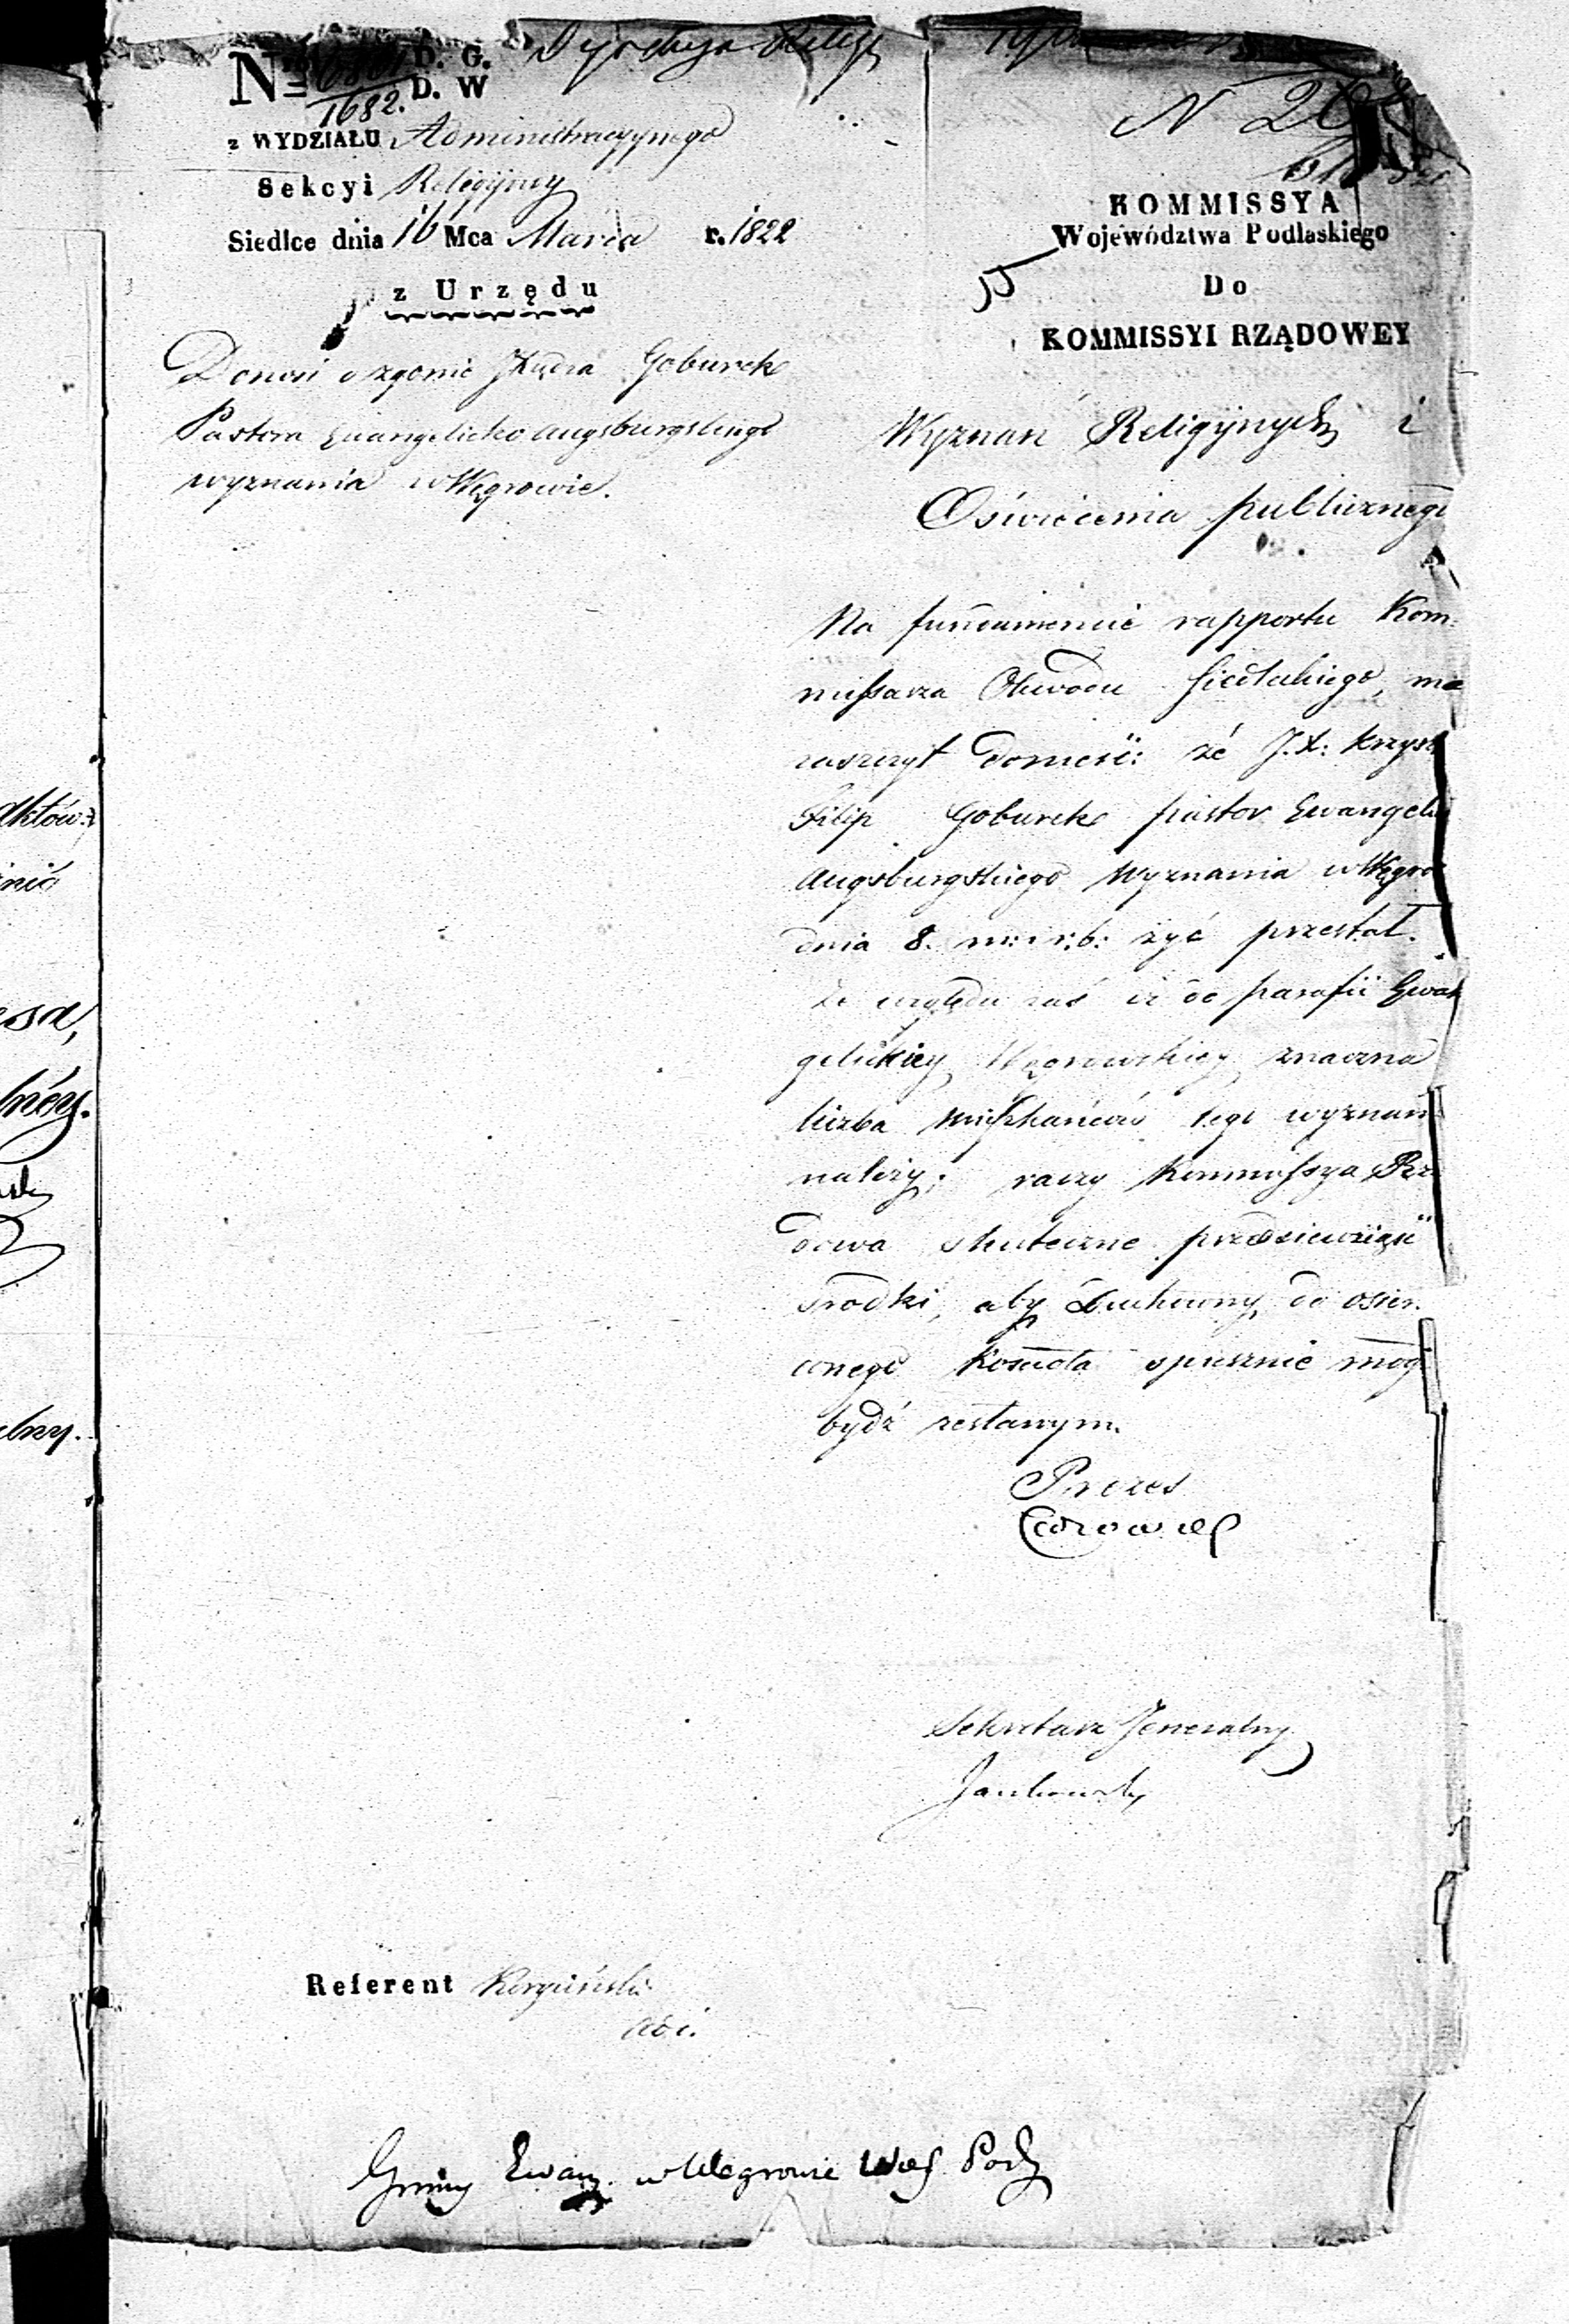 Dyrekcya Religi
Nº D. G.
1682. D. W
z WYDZIAŁU Administracyjnego
Sekcyi Religijney
Siedlce dnia 16 Mca Marca r. 1822
z Urzędu
Donosi o zgonie JXiędza Goburek
Pastora Ewangelicko Augsburgskiego
wyznania w Węgrowie.
N
KOMMISSYA
Województwa Podlaskiego
Do
KOMMISSYI RZĄDOWEY
Wyznań Religijnych i
Oświecenia publicznego
Na fundamencie rapportu Kom:
missarza Obwodu Siedleckiego, ma
zaszczyt donieść: że J.X: Krzysz
Filip Goburek pastor Ewangelic
Augsburgskiego Wyznania w Węgro
dnia 8. m: i r: b: żyć przestał.
Ze względu zaś iż do parafii Ewan
gelickiey Węgrowskiey znaczna
liczba mieszkańców tego wyznani
należy; raczy Kommissya Rzą
dowa skuteczne przedsiewziąść
środki, aby Duchowny do osier.
conego Kościoła spiesznie mógł
bydź zesłanym.
Prezes
Sekretarz Jeneralny
Jankowski
Referent
Gminy Ewang. w Węgrowie Woj. Podl
aktów